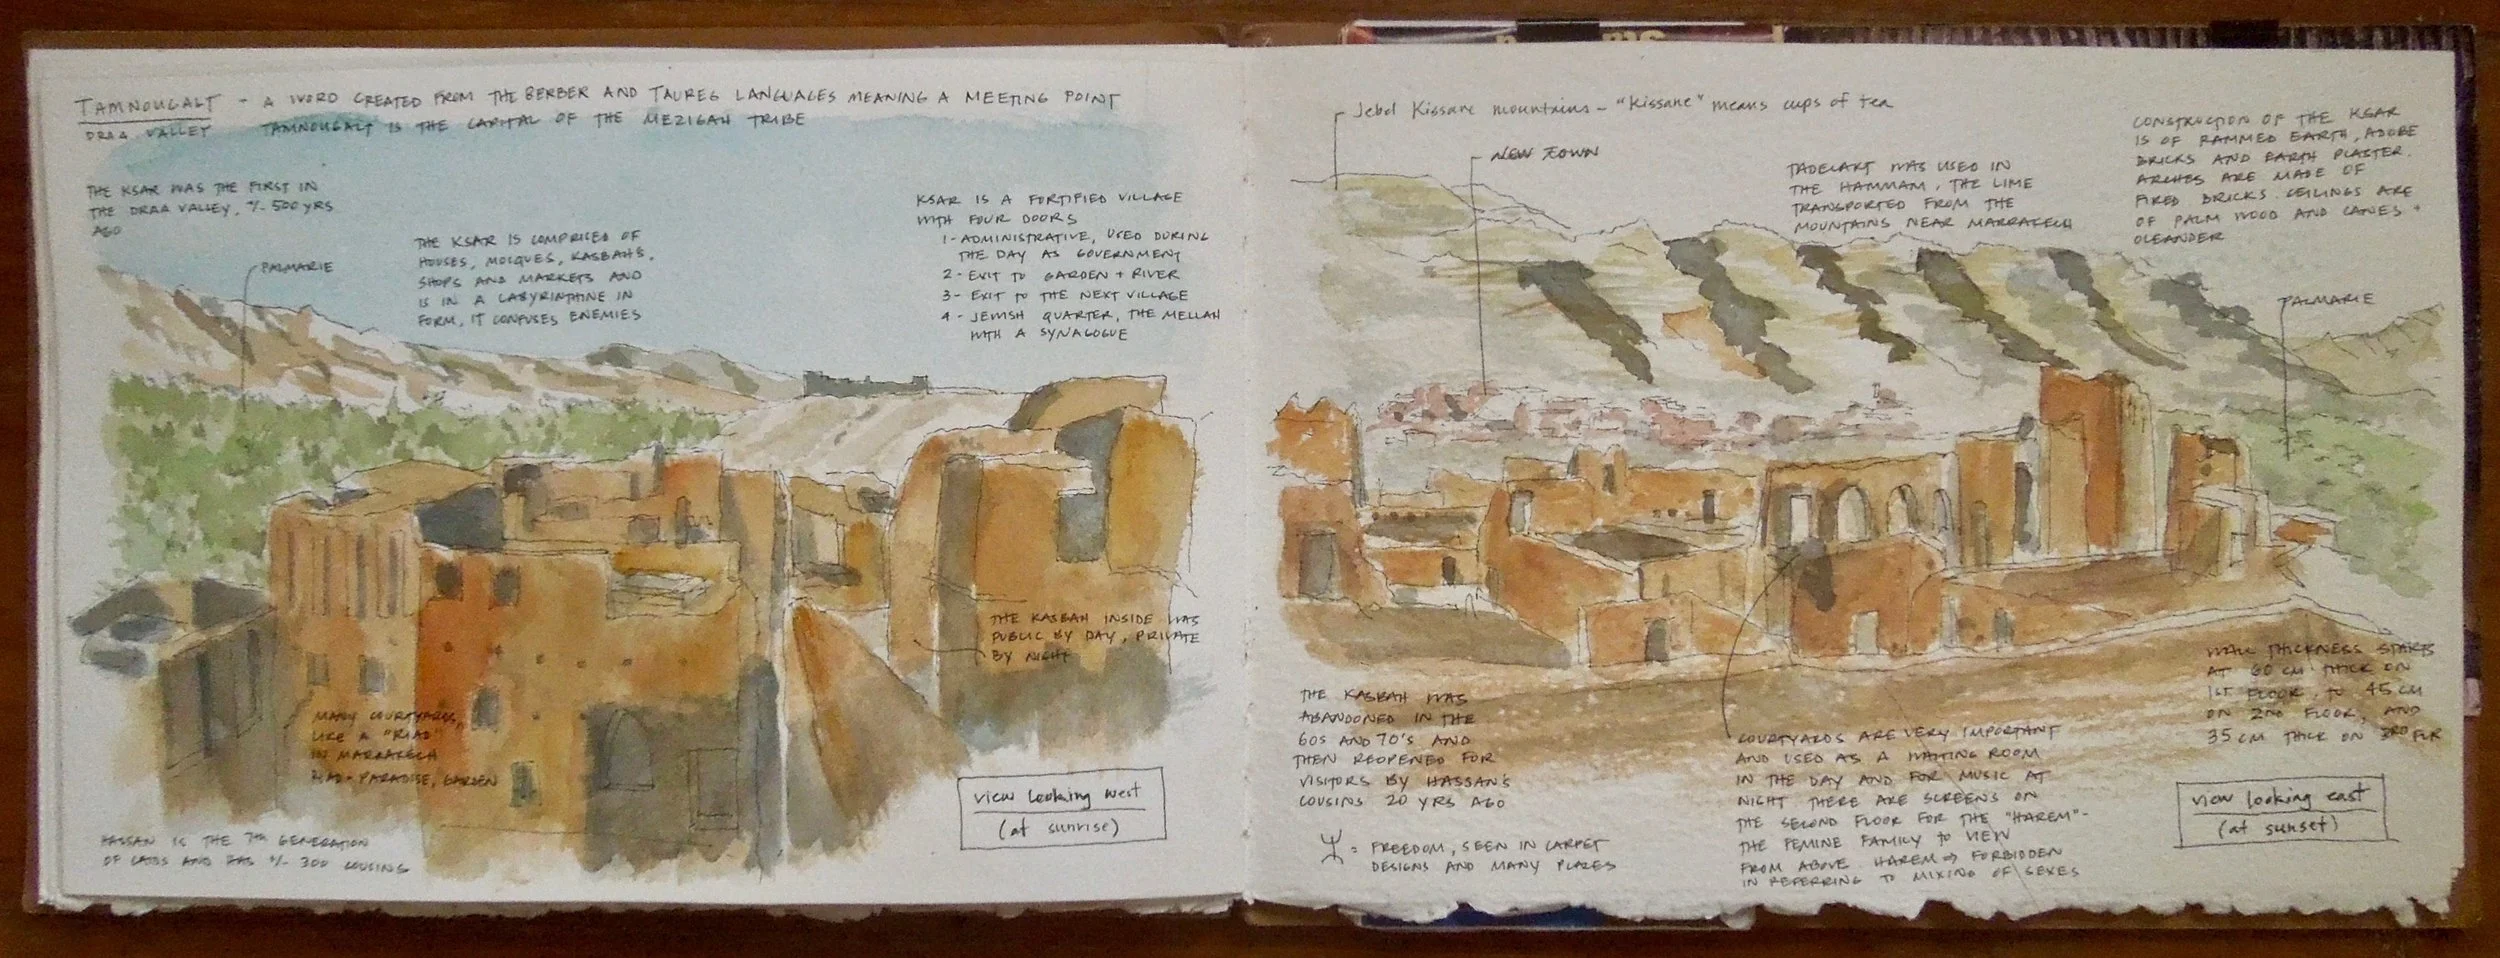 TAMNOUGALT - A WORD CREATED FROM THE BERBER AND TAUREG LANGUAGES MEANING A MEETING POINT
DRAA VALLEY TAMNOUGALT IS THE CAPITAL OF THE MEZIGAH TRIBE
THE KSAR WAS THE FIRST IN
THE DRAA VALLEY, +/- 500 YRS
AGO
PALMARIE
THE KSAR IS COMPRISED OF
HOUSES, MOSQUES, KASBAHS,
SHOPS AND MARKETS AND
IS IN A LABYRINTHINE IN
FORM, IT CONFUSES ENEMIES
KSAR IS A FORTIFIED VILLAGE
WITH FOUR DOORS
1- ADMINISTRATIVE, USED DURING
THE DAY AS GOVERNMENT
2- EXIT TO GARDEN + RIVER
3- EXIT TO THE NEXT VILLAGE
4- JEWISH QUARTER, THE MELLAH
WITH A SYNAGOGUE
THE KASBAH INSIDE WAS
PUBLIC BY DAY, PRIVATE
BY NIGHT
MANY COURTYARDS,
LIKE A "RIAD"
IN MARRAKECH
RIAD = PARADISE, GARDEN
HASSAN IS THE 7TH GENERATION
OF CAIDS AND HAS +/- 300 COUSINS
view looking west
(at sunrise)
Jebel Kissane mountains - "Kissane" means cups of tea
NEW TOWN
TADELAKT WAS USED IN
THE HAMMAM, THE LIME
TRANSPORTED FROM THE
MOUNTAINS NEAR MARRAKECH
CONSTRUCTION OF THE KSAR
IS OF RAMMED EARTH, ADOBE
BRICKS AND EARTH PLASTER.
ARCHES ARE MADE OF
FIRED BRICKS. CEILINGS ARE
OF PALM WOOD AND CANES +
OLEANDER
PALMARIE
THE KASBAH WAS
ABANDONED IN THE
60S AND 70'S AND
THEN REOPENED FOR
VISITORS BY HASSAN'S
COUSINS 20 YRS AGO
= FREEDOM, SEEN IN CARPET
DESIGNS AND MANY PLACES
COURTYARDS ARE VERY IMPORTANT
AND USED AS A WAITING ROOM
IN THE DAY AND FOR MUSIC AT
NIGHT THERE ARE SCREENS ON
THE SECOND FLOOR FOR THE "HAREM" -
THE FEMINE FAMILY TO VIEW
FROM ABOVE. HAREM => FORBIDDEN
IN REFERRING TO MIXING OF SEXES
WALL THICKNESS STARTS
AT 60 CM THICK ON
1ST FLOOR, TO 45 CM
ON 2ND FLOOR, AND
35 CM THICK ON 3RD FLR
view looking east
(at sunset)